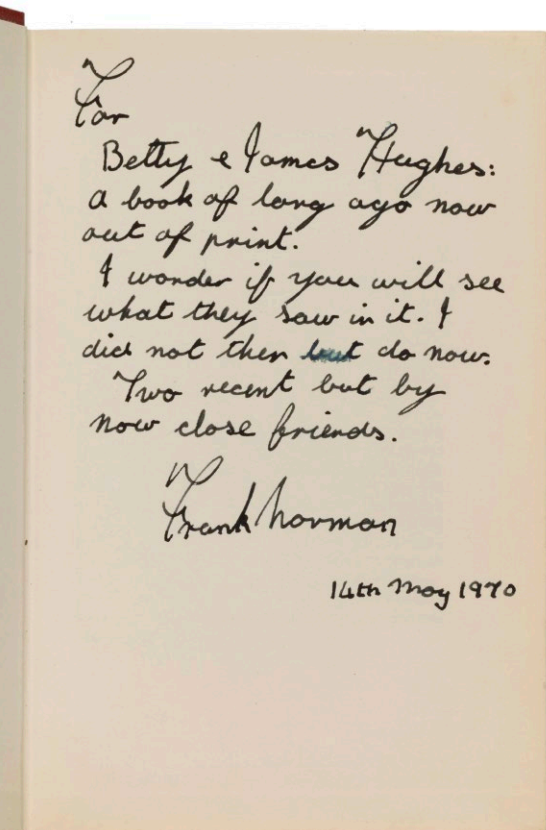 For
Betty & James Hughes:
a book of long ago now
out of print.
I wonder if you will see
what they saw in it. I
did not then but do now.
Two recent but by
now close friends.
Frank Norman
14th May 1970